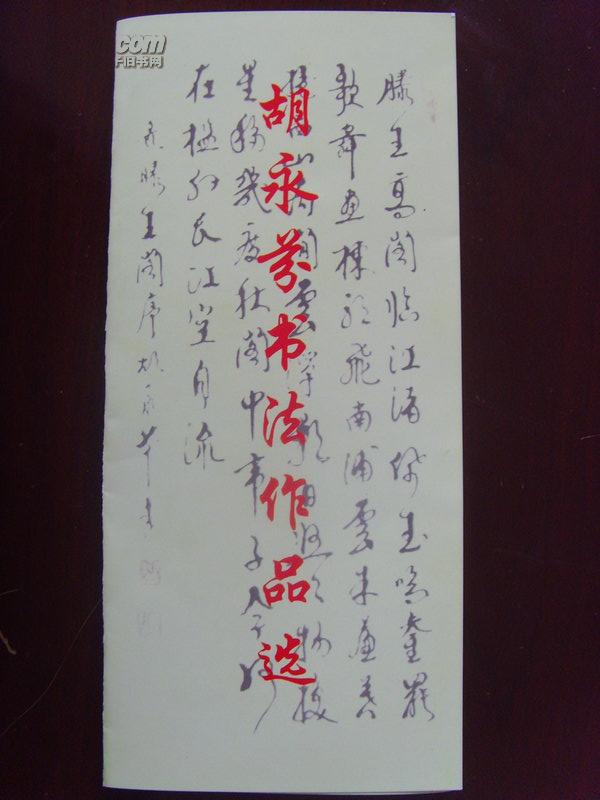 com
旧书网
胡永芬书法作品选
滕王高阁临江渚佩玉鸣鸾罢
歌舞画栋朝飞南浦雲朱簾暮
雲潭影日悠悠物换
星移几度秋阁中帝子今何
在槛外长江空自流
滕王阁序胡永芬书